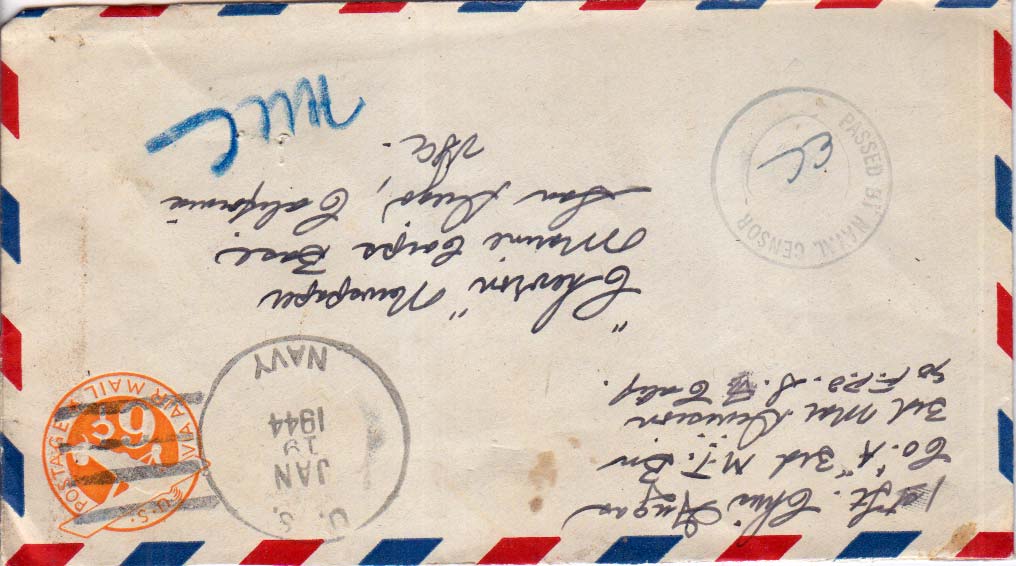 Co. "A" 3rd M.T. Bn
3rd Mar Division
F.P.O. S.F. Calif.
U.S.
JAN
1944
NAVY
U.S. POSTAGE VIA AIR MAIL
6¢
"Chevron" Newspaper
Marine Corps Base
San Diego, California
PASSED BY NAVAL CENSOR